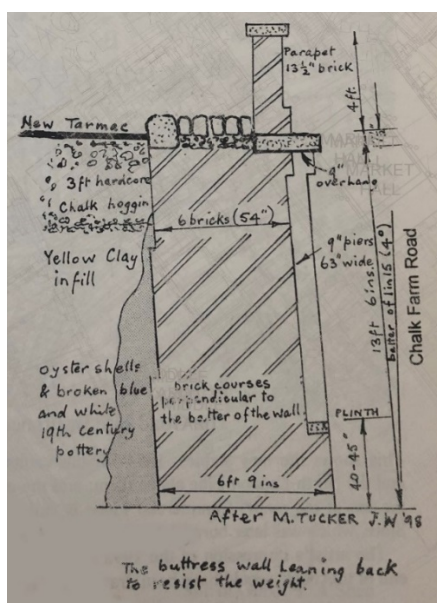 Parapet
13½" brick
4 ft.
New Tarmac
MARKET
HALL
9"
overhang
3ft hardcore
Chalk hoggin
6 bricks (54")
Yellow Clay
infill
9" piers
63" wide
13ft 6 ins.
batter of 1 in 15 (4°)
Chalk Farm Road
oyster shells
& broken blue
and white
19th Century
pottery
brick courses
perpendicular to
the batter of the wall
PLINTH
40-45"
6ft 9 ins
After M. TUCKER J.W '98
The buttress wall leaning back
to resist the weight.